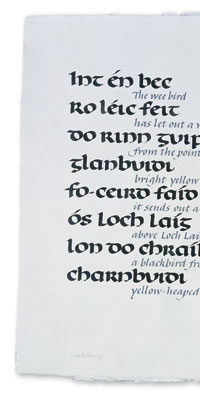 Int én bec
The wee bird
ro léic feit
has let out a
do rinn guip
from the point
glanbuidi
bright yellow
fo-ceird faíd
it sends out a
ós Loch Laíg
above Loch Laí
lon do chraíb
a blackbird fr
charnbuidi
yellow-heaped